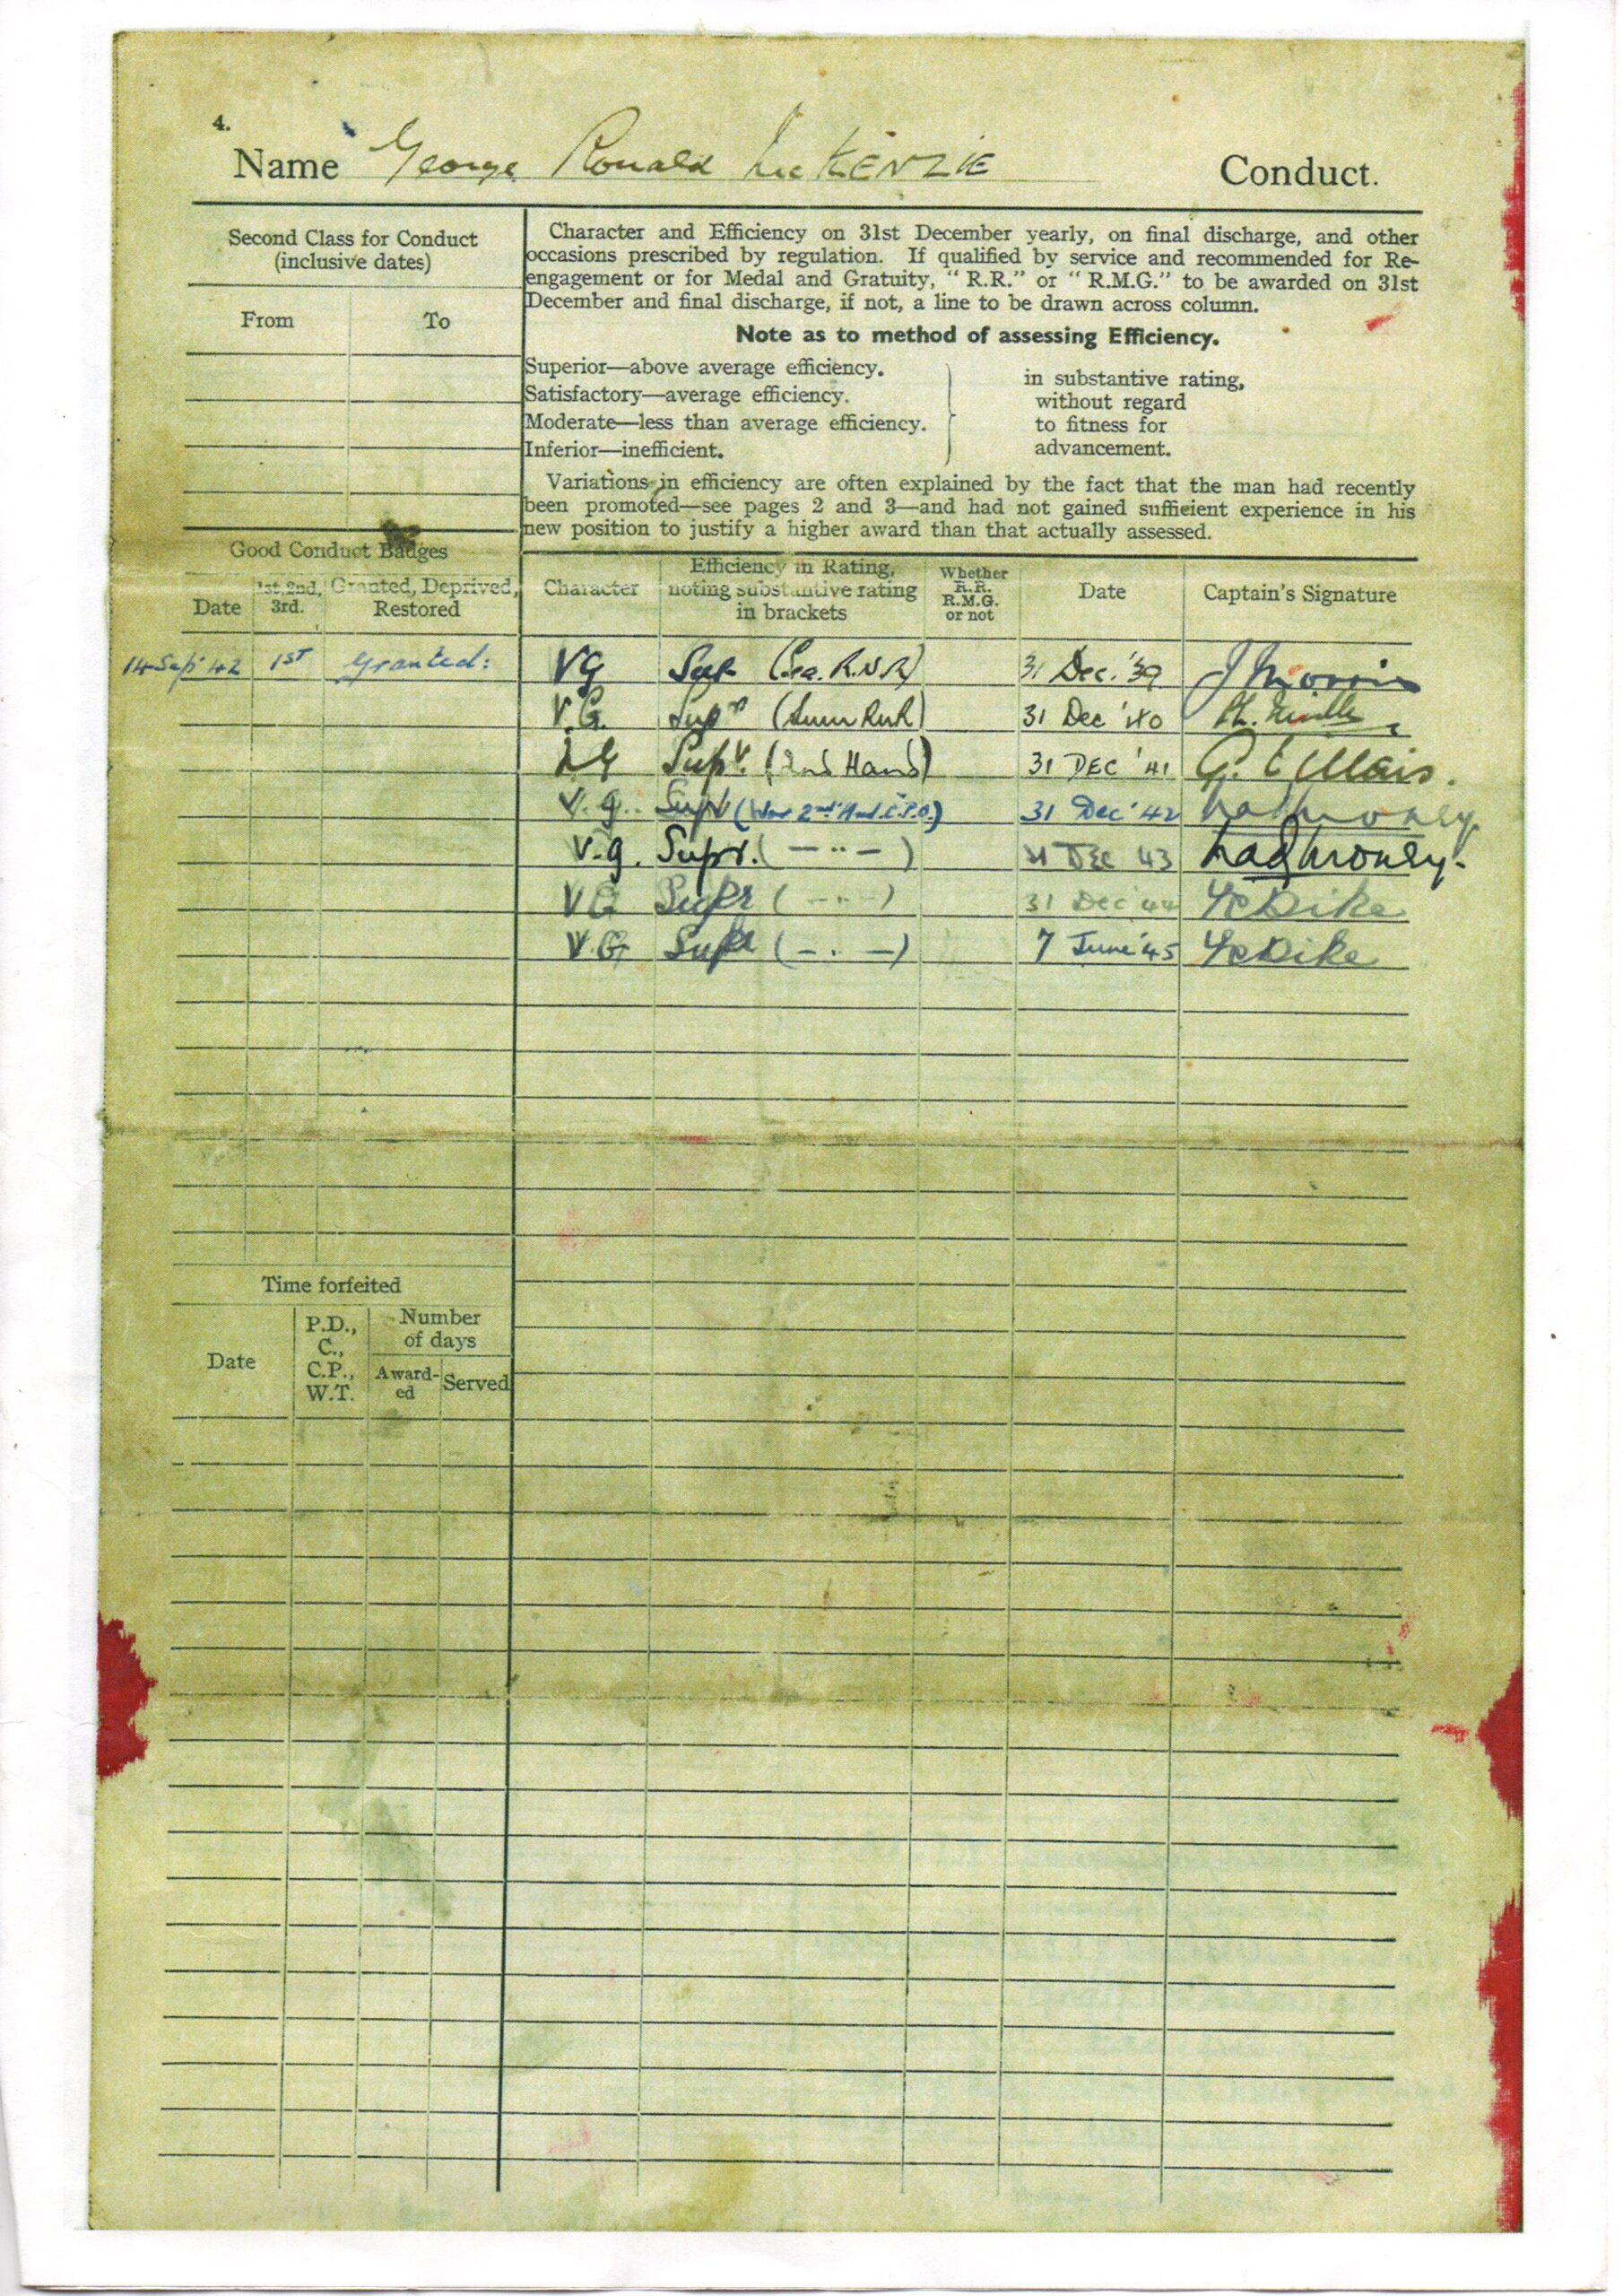 4.
Name George Ronald McKENZIE Conduct.
Second Class for Conduct
(inclusive dates)
From To
Character and Efficiency on 31st December yearly, on final discharge, and other
occasions prescribed by regulation. If qualified by service and recommended for Re-
engagement or for Medal and Gratuity, "R.R." or "R.M.G." to be awarded on 31st
December and final discharge, if not, a line to be drawn across column.
Note as to method of assessing Efficiency.
Superior—above average efficiency.
Satisfactory—average efficiency.
Moderate—less than average efficiency.
Inferior—inefficient.
in substantive rating,
without regard
to fitness for
advancement.
Variations in efficiency are often explained by the fact that the man had recently
been promoted—see pages 2 and 3—and had not gained sufficient experience in his
new position to justify a higher award than that actually assessed.
Good Conduct Badges
Date
1st, 2nd,
3rd.
Granted, Deprived,
Restored
Character
Efficiency in Rating,
noting substantive rating
in brackets
Whether
R.R.
R.M.G.
or not
Date
Captain's Signature
14 Sep '42 1ST Granted: VG Sup (Sea. R.N.R) 31 Dec. '39 J Morris
V.G. Supr 31 Dec '40
VG Supr. (2nd Hand) 31 DEC '41
V.g. Supr (2nd Hand. C.P.O.) 31 Dec '42
V.g. Supr. ( — " — ) 31 DEC 43
VG Supr ( — " — ) 31 Dec '44
V.G Supr ( — . — ) 7 June '45
Time forfeited
Date
P.D.,
C.,
C.P.,
W.T.
Number
of days
Award-
ed
Served